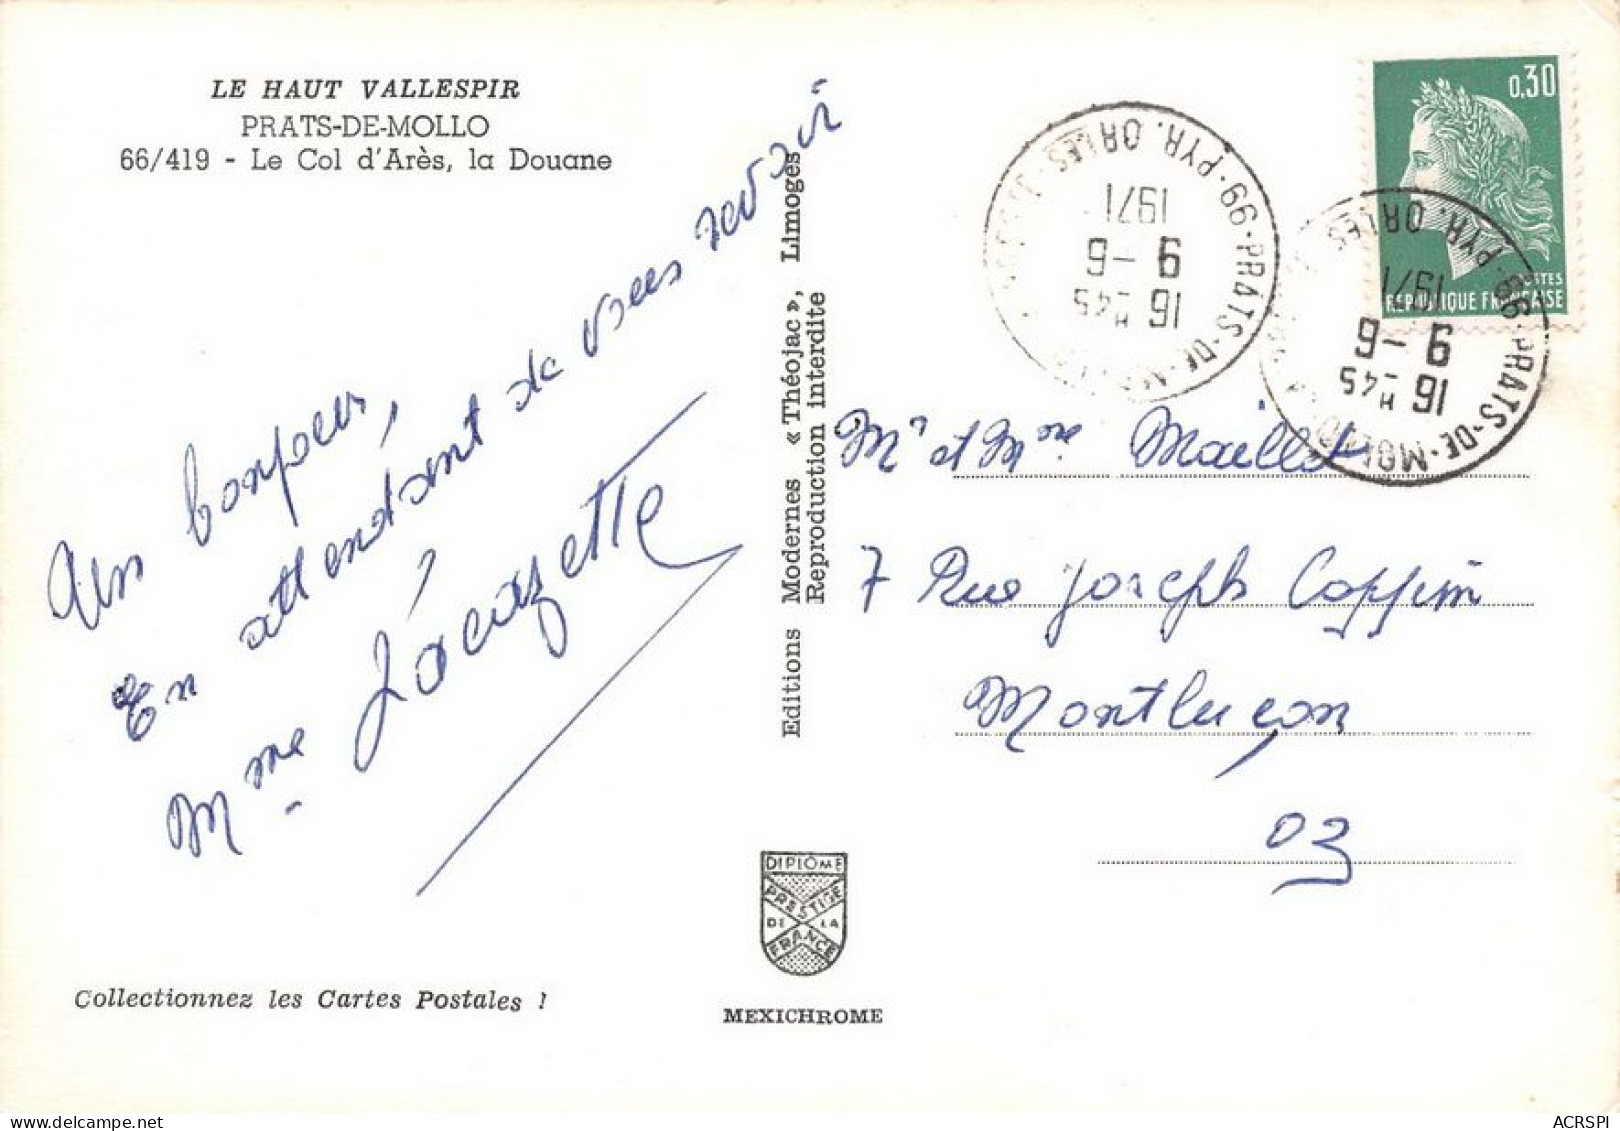 LE HAUT VALLESPIR
PRATS-DE-MOLLO
66/419 - Le Col d'Arès, la Douane
Un bonjour,
En attendant de vous revoir
Mme Lacazette
Collectionnez les Cartes Postales !
Editions Modernes « Théojac », Limoges
Reproduction interdite
DIPLÔME
PRESTIGE
DE LA
FRANCE
MEXICHROME
0,30
POSTES
REPUBLIQUE FRANÇAISE
66·PRATS-DE-MOLLO
PYR. ORLES
16 H -45
9 - 6
1971
66·PRATS-DE-MOLLO
PYR. ORLES
16 H -45
9 - 6
1971
Mr et Mme Maillet
7 Rue Joseph Coppin
Montluçon
03
ACRSPI